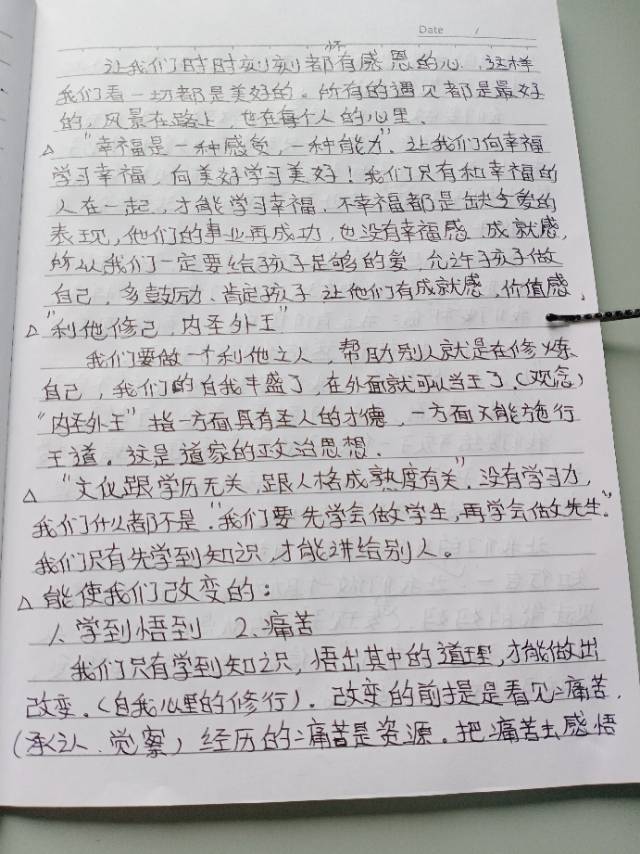 Date
怀
让我们时时刻刻都有感恩的心，这样
我们看一切都是美好的。所有的遇见都是最好
的，风景在路上，也在每个人的心里。
△ "幸福是一种感觉，一种能力"，让我们向幸福
学习幸福，向美好学习美好！我们只有和幸福的
人在一起，才能学习幸福，不幸福都是缺乏爱的
表现，他们的事业再成功，也没有幸福感，成就感，
所以我们一定要给孩子足够的爱，允许孩子做
自己，多鼓励、肯定孩子，让他们有成就感，价值感，
△ "利他修己，内圣外王"
我们要做一个利他之人，帮助别人就是在修炼
自己，我们的自我丰盛了，在外面就可以当王了，（观念）
"内圣外王"指一方面具有圣人的才德，一方面又能施行
王道。这是道家的政治思想.
△ "文化跟学历无关，跟人格成熟度有关"，没有学习力，
我们什么都不是."我们要先学会做学生，再学会做先生"。
我们只有先学到知识，才能讲给别人。
△ 能使我们改变的：
1、学到悟到 2、痛苦
我们只有学到知识，悟出其中的道理，才能做出
改变。（自我心里的修行）。改变的前提是看见痛苦.
（承认、觉察）经历的痛苦是资源。把痛苦去感悟